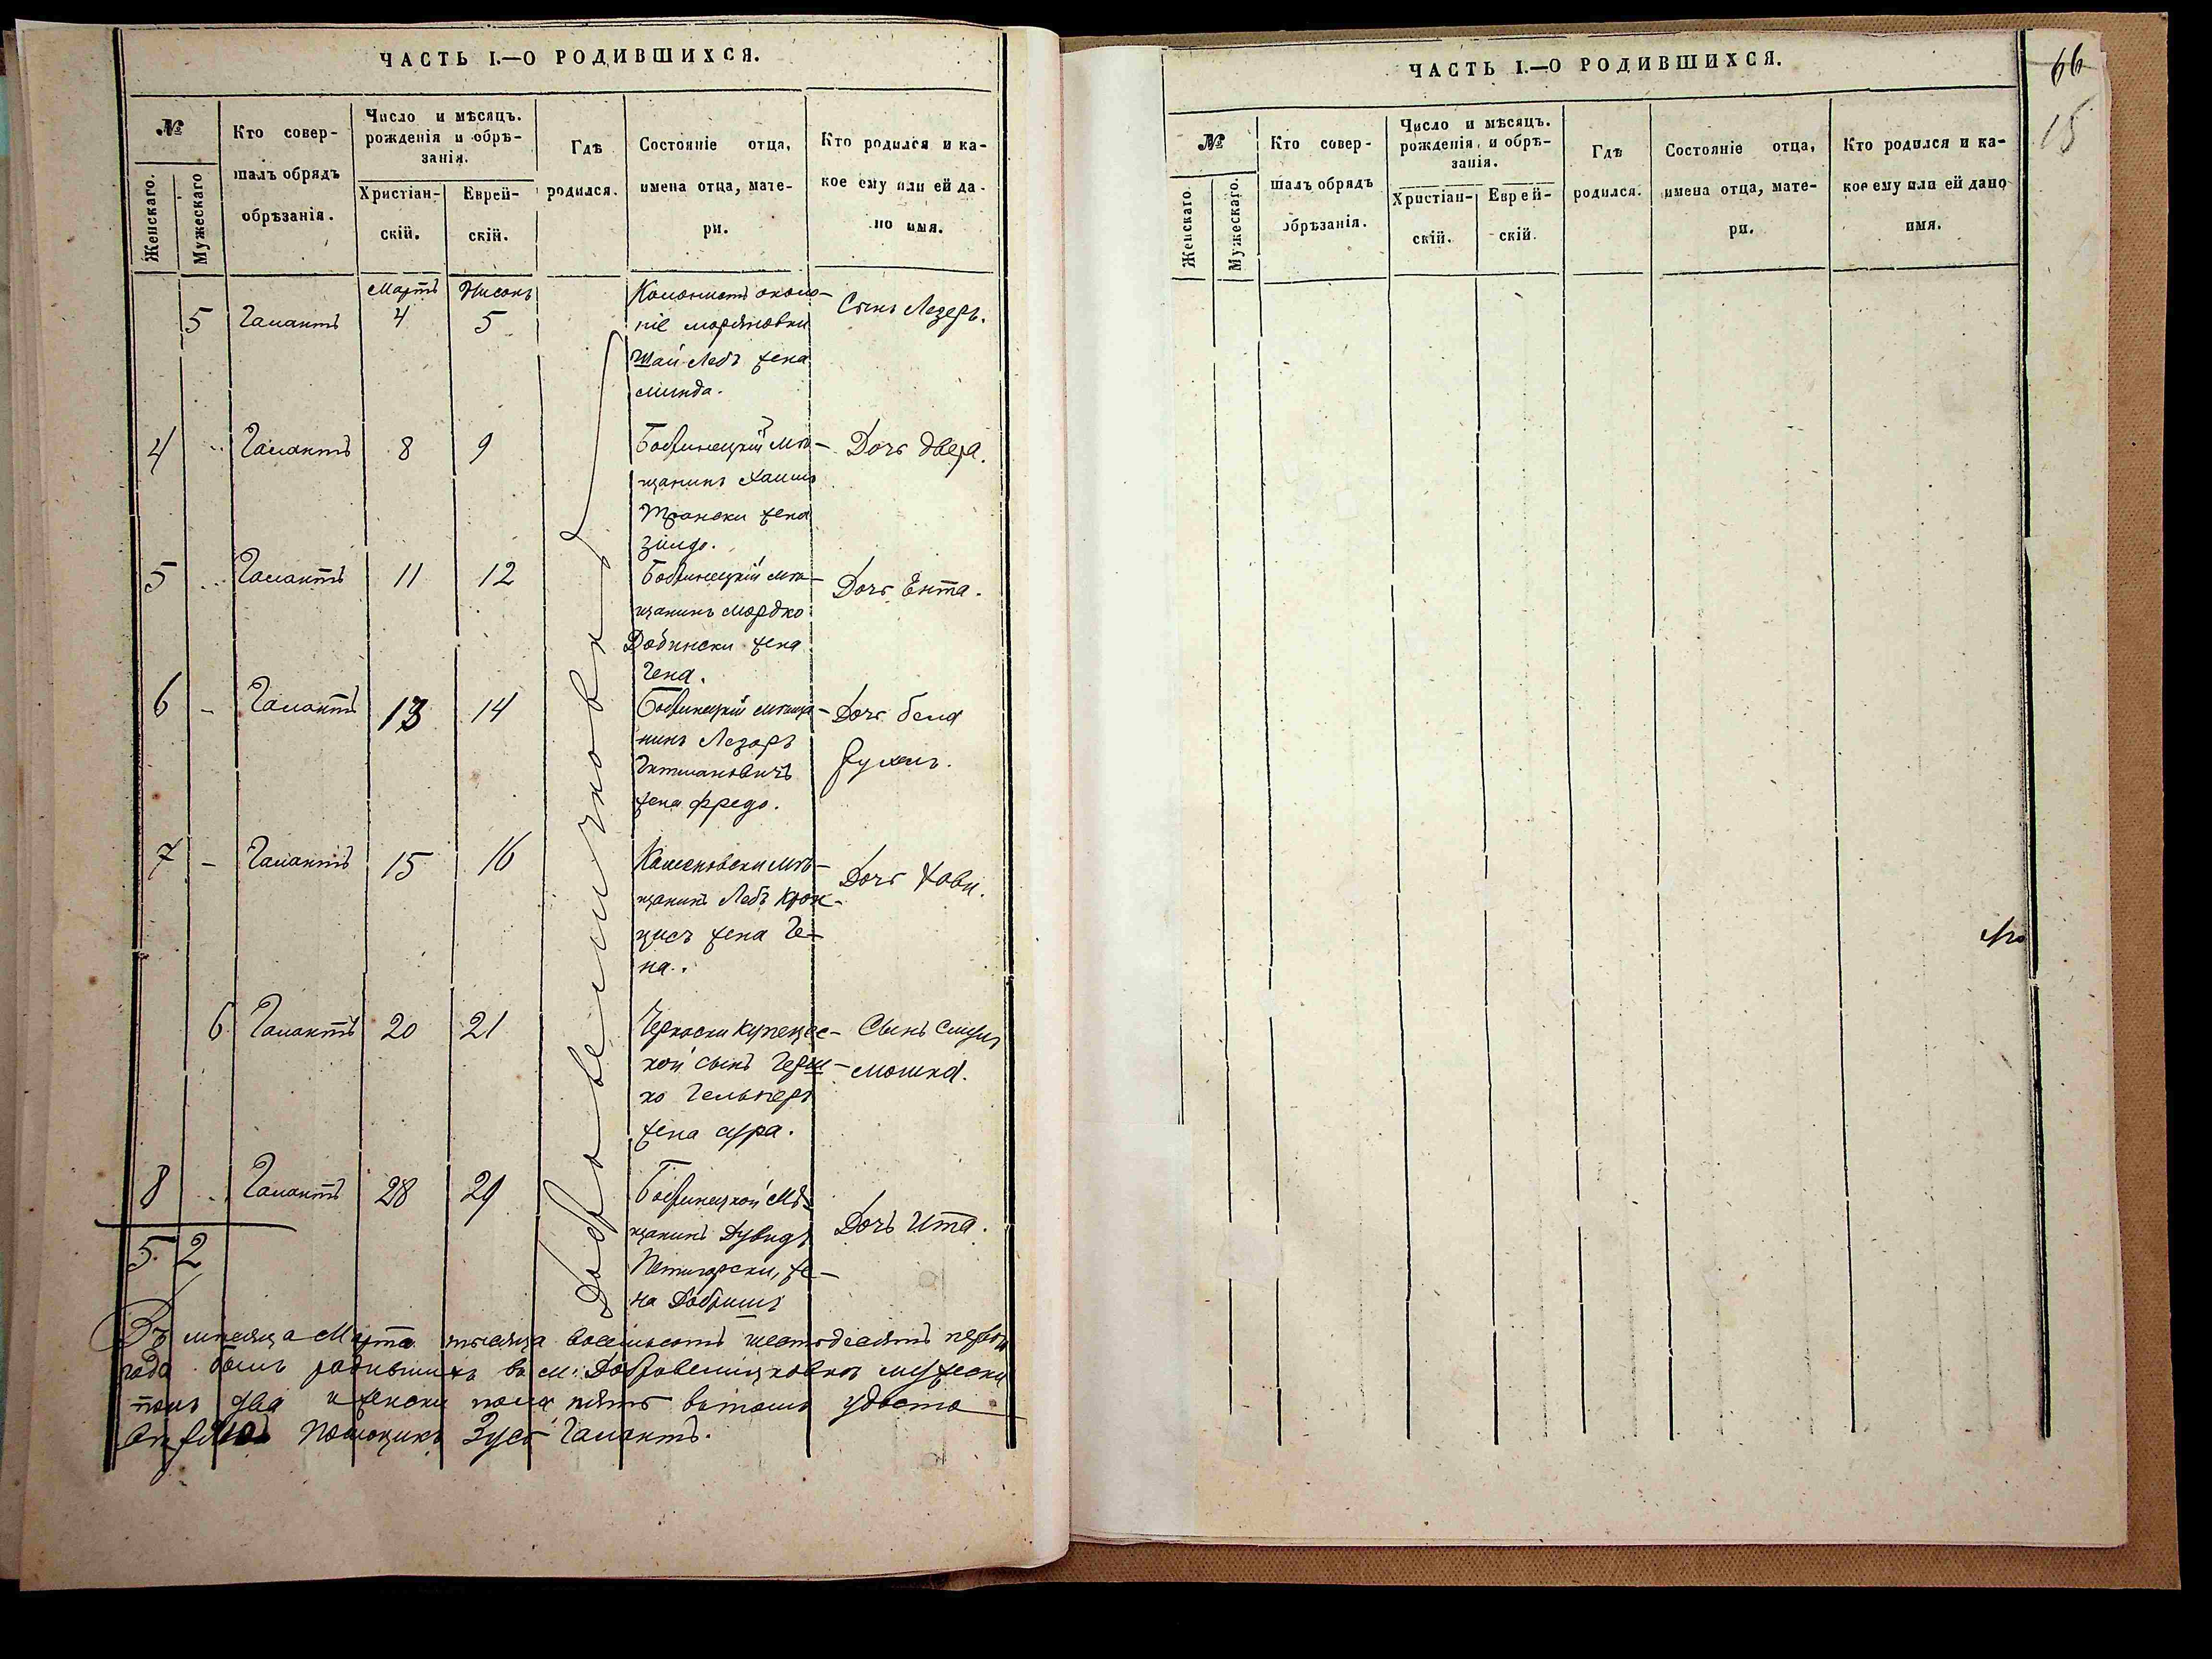 ЧАСТЬ I.—О РОДИВШИХСЯ.
№
Женскаго.
Мужескаго
Кто совер-
шалъ обрядъ
обрѣзанія.
Число и мѣсяцъ.
рожденія и обрѣ-
занія.
Христіан-
скій.
Еврей-
скій.
Гдѣ
родился.
Состояніе отца,
имена отца, мате-
ри.
Кто родился и ка-
кое ему или ей да-
но имя.
Мартъ Нисонъ
5 Галантъ 4 5
Колонистъ
Шай Лебъ жена
минда.
Сынъ Лезеръ.
4 Галантъ 8 9
Бобринецкій мѣ-
щанинъ Хаимъ
жена
Дочь Двера.
5 Галантъ 11 12
Бобринецкій мѣ-
щанинъ Мордко
Добински жена
Гена.
Дочь Ента.
6 - Галантъ 13 14
Бобринецкій мѣща-
нинъ Лезоръ
Гитмановичъ
жена фредо.
Дочь бела
Рухель.
7 - Галантъ 15 16
мѣ-
щанинъ Лебъ
жена Ге-
на.
Дочь Хави.
6 Галантъ 20 21
Черкаски Купечес-
кой сынъ Герш-
ко
жена сура.
Сынъ Смуль
мошка.
8 Галантъ 28 29
Бобринецкой Мѣ-
щанинъ Дувидъ
Петигорски, же-
на Добришъ
Дочь Ита.
5. 2
Добровеличковка
Въ мѣсяца Марта тысяща восемьсотъ шестьдесятъ первой
года было родившихъ въ м. Добровелицковки мужески
полъ два и женски пола пять въ томъ удосто
Помощикъ Зусь Галантъ.
66
15
ЧАСТЬ I.—О РОДИВШИХСЯ.
№
Женскаго.
Мужескаго.
Кто совер-
шалъ обрядъ
обрѣзанія.
Число и мѣсяцъ.
рожденія, и обрѣ-
занія.
Христіан-
скій.
Еврей-
скій.
Гдѣ
родился.
Состояніе отца,
имена отца, мате-
ри.
Кто родился и ка-
кое ему или ей дано
имя.